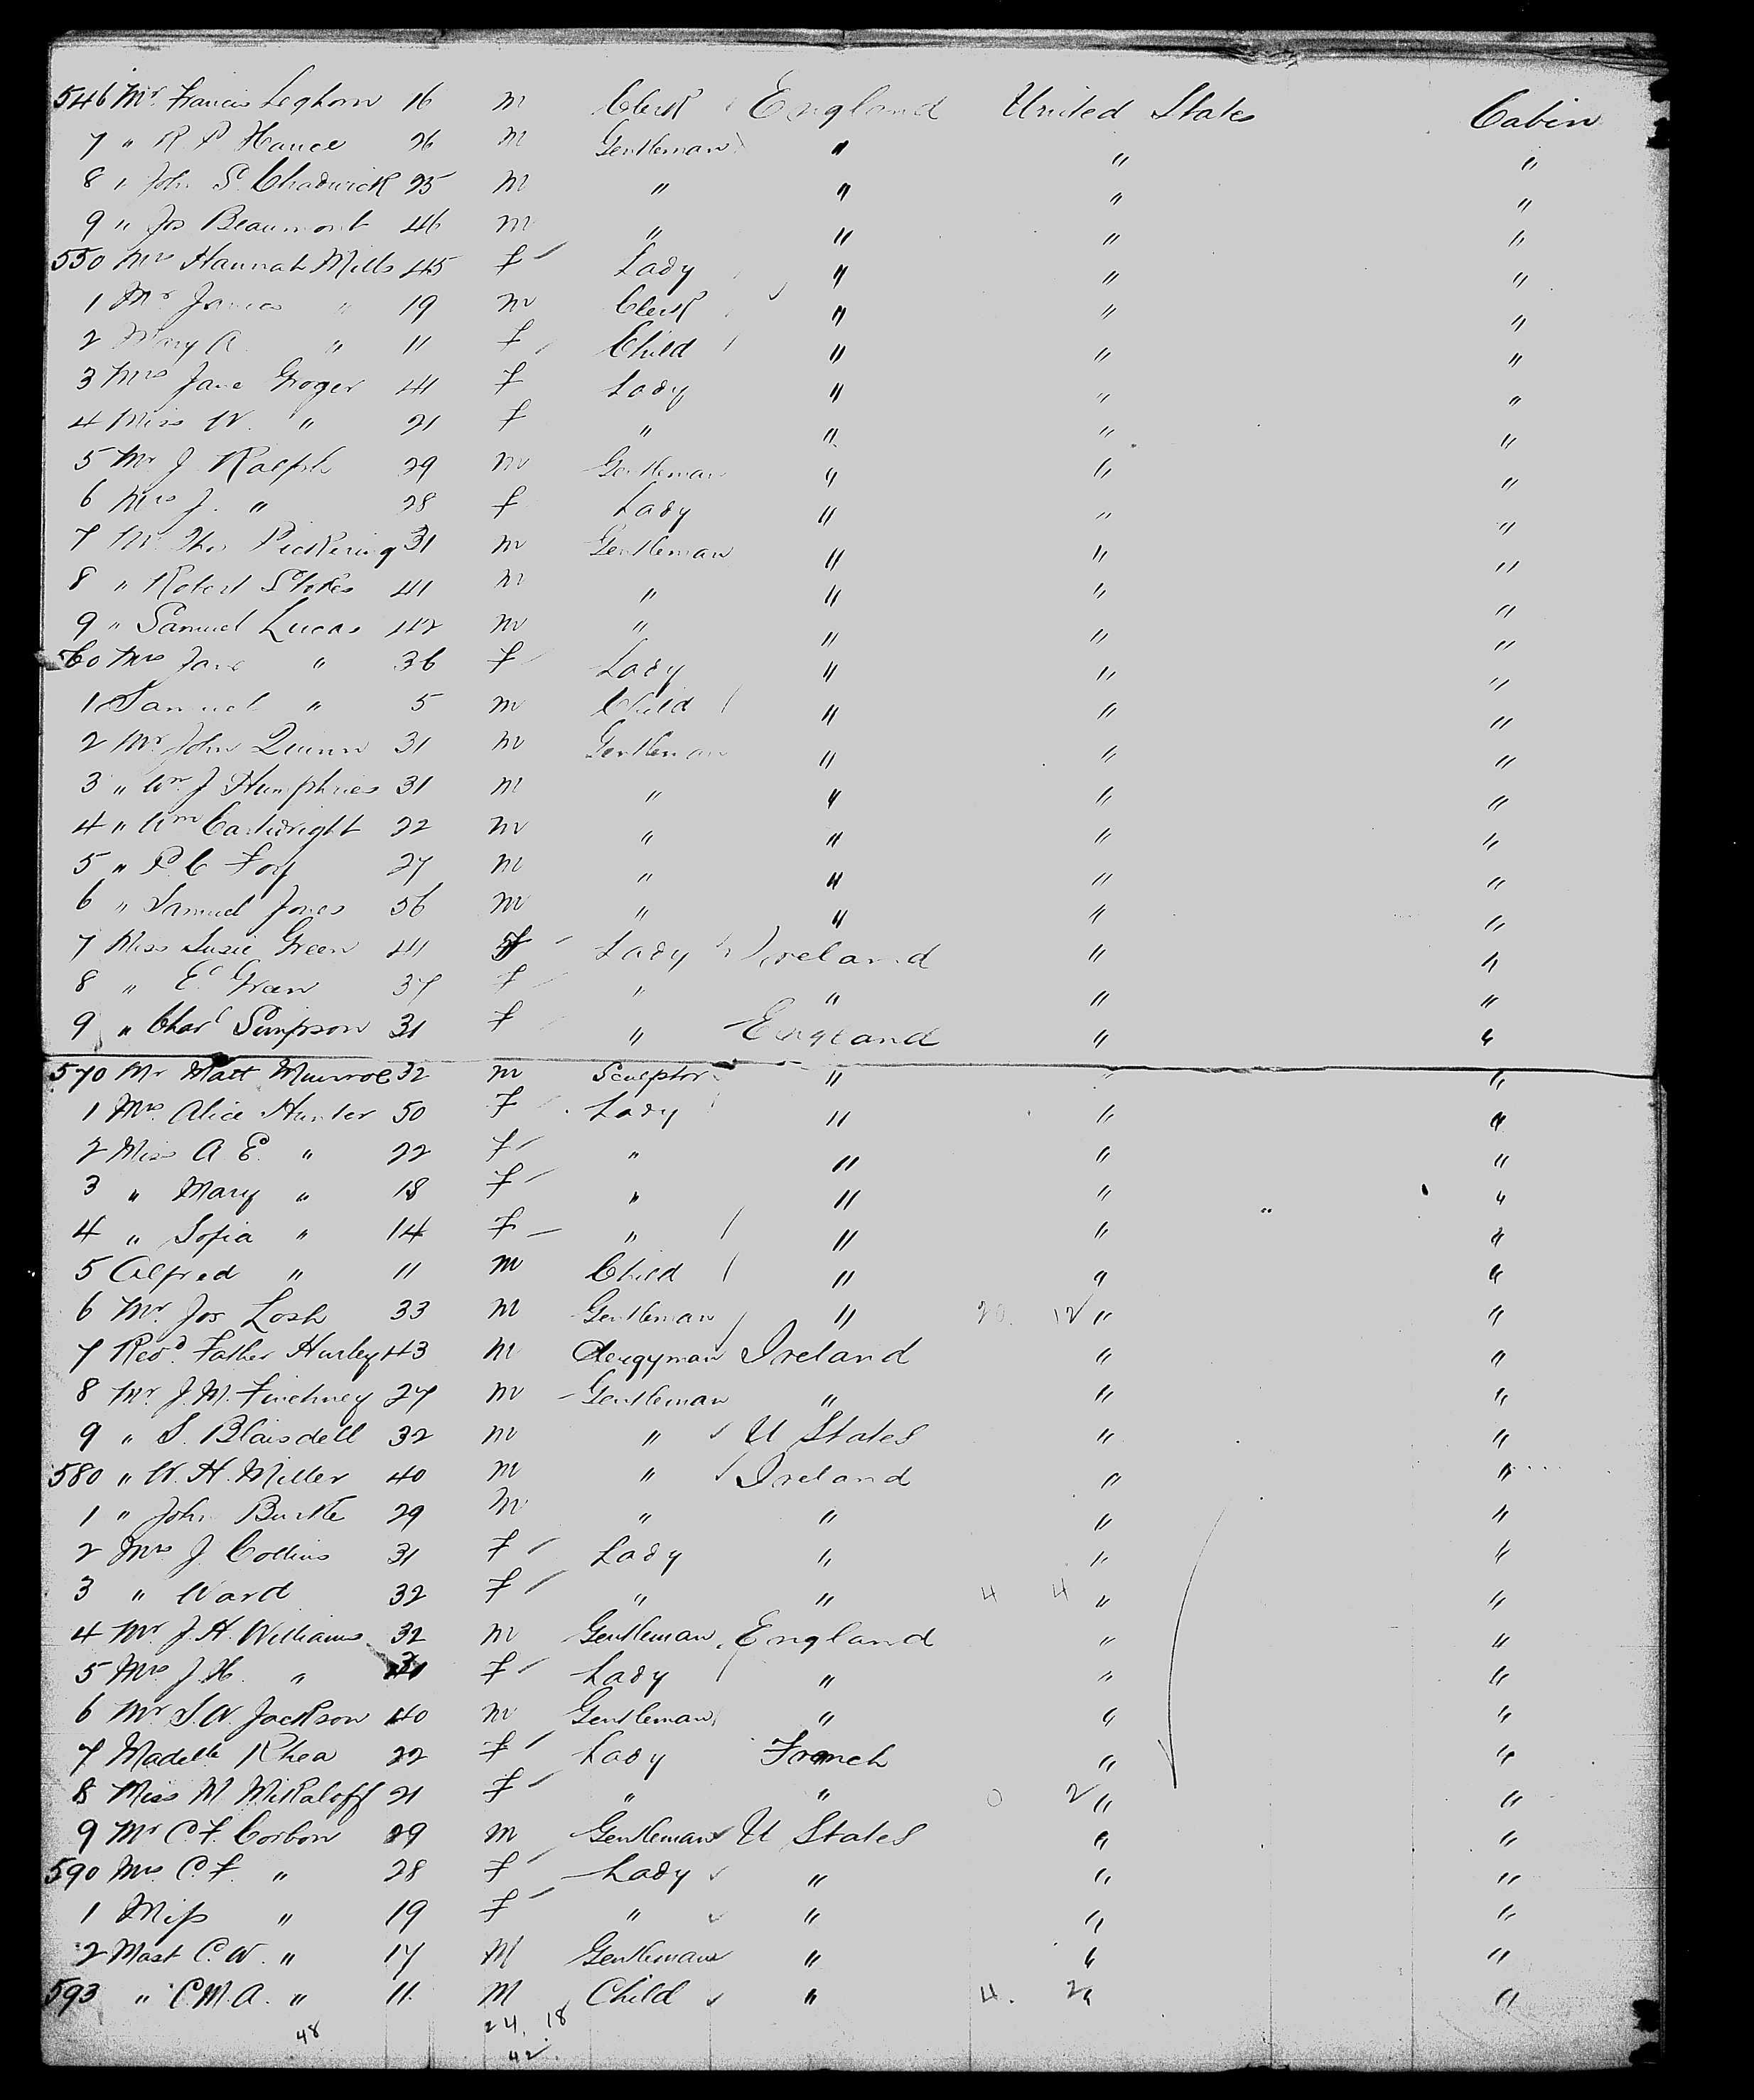 546 Mr. Francis Leghorn 16 m Clerk England United States Cabin
7 " R P Hance 26 m Gentleman " " "
8 " John S. Chadwick 25 m " " " "
9 " Jos Beaumont 46 m " " " "
550 Mrs Hannah Mills 45 f Lady " " "
1 Mr James " 19 m Clerk " " "
2 Mary A " 11 f Child " " "
3 Mrs Jane Groger 41 f Lady " " "
4 Miss W. " 21 f " " " "
5 Mr J Ralph 29 m Gentleman " " "
6 Mrs J. " 28 f Lady " " "
7 Mr. Thos Pickering 31 m Gentleman " " "
8 " Robert Stokes 41 m " " " "
9 " Samuel Lucas 42 m " " " "
560 Mrs Jane " 36 f Lady " " "
1 Samuel " 5 m Child " " "
2 Mr. John Quinn 31 m Gentleman " " "
3 " Wm J Humphries 31 m " " " "
4 " Wm Cartwright 22 m " " " "
5 " P. C Foy 27 m " " " "
6 " Samuel Jones 56 m " " " "
7 Miss Susie Green 41 f Lady Ireland " "
8 " E. Green 37 f " " " "
9 " Charl Simpson 31 f " England " "
570 Mr Matt Munroe 32 m Sculptor " " "
1 Mrs. Alice Hunter 50 f Lady " " "
2 Miss A. E. " 22 f " " " "
3 " Mary " 18 f " " " "
4 " Sofia " 14 f " " " "
5 Alfred " 11 m Child " " "
6 Mr. Jos Losh 33 m Gentleman " 20. 12 " "
7 Revd. Father Hurley 43 m Clergyman Ireland " "
8 Mr J. M. Finchney 27 m Gentleman " " "
9 " S. Blaisdell 32 m " U States " "
580 " W. H. Miller 40 m " Ireland " "
1 " John Burke 29 m " " " "
2 Mrs J. Collins 31 f Lady " " "
3 " Ward 32 f " " 4 4 " "
4 Mr. J. H. Williams 32 m Gentleman England " "
5 Mrs J. H. " 31 f Lady " " "
6 Mr S. W. Jackson 40 m Gentleman " " "
7 Madelle Rhea 22 f Lady French " "
8 Miss M Mikaloff 21 f " " 0 2 " "
9 Mr C. F. Corbon 29 m Gentleman U States " "
590 Mrs C. F. " 28 f Lady " " "
1 Miss " 19 f " " " "
2 Mast C. W. " 17 M Gentleman " " "
593 " C. M. A. " 11. M Child " 4. 2 " "
48 24. 18
42